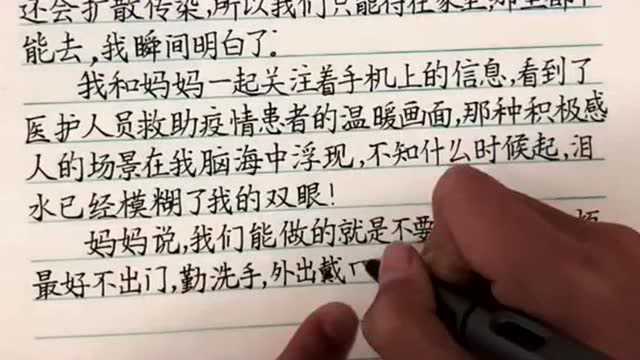 还会扩散传染,所以我们只能待在家里,那里都不
能去,我瞬间明白了。
我和妈妈一起关注着手机上的信息,看到了
医护人员救助疫情患者的温暖画面,那种积极感
人的场景在我脑海中浮现,不知什么时候起,泪
水已经模糊了我的双眼!
妈妈说,我们能做的就是不要
最好不出门,勤洗手,外出戴